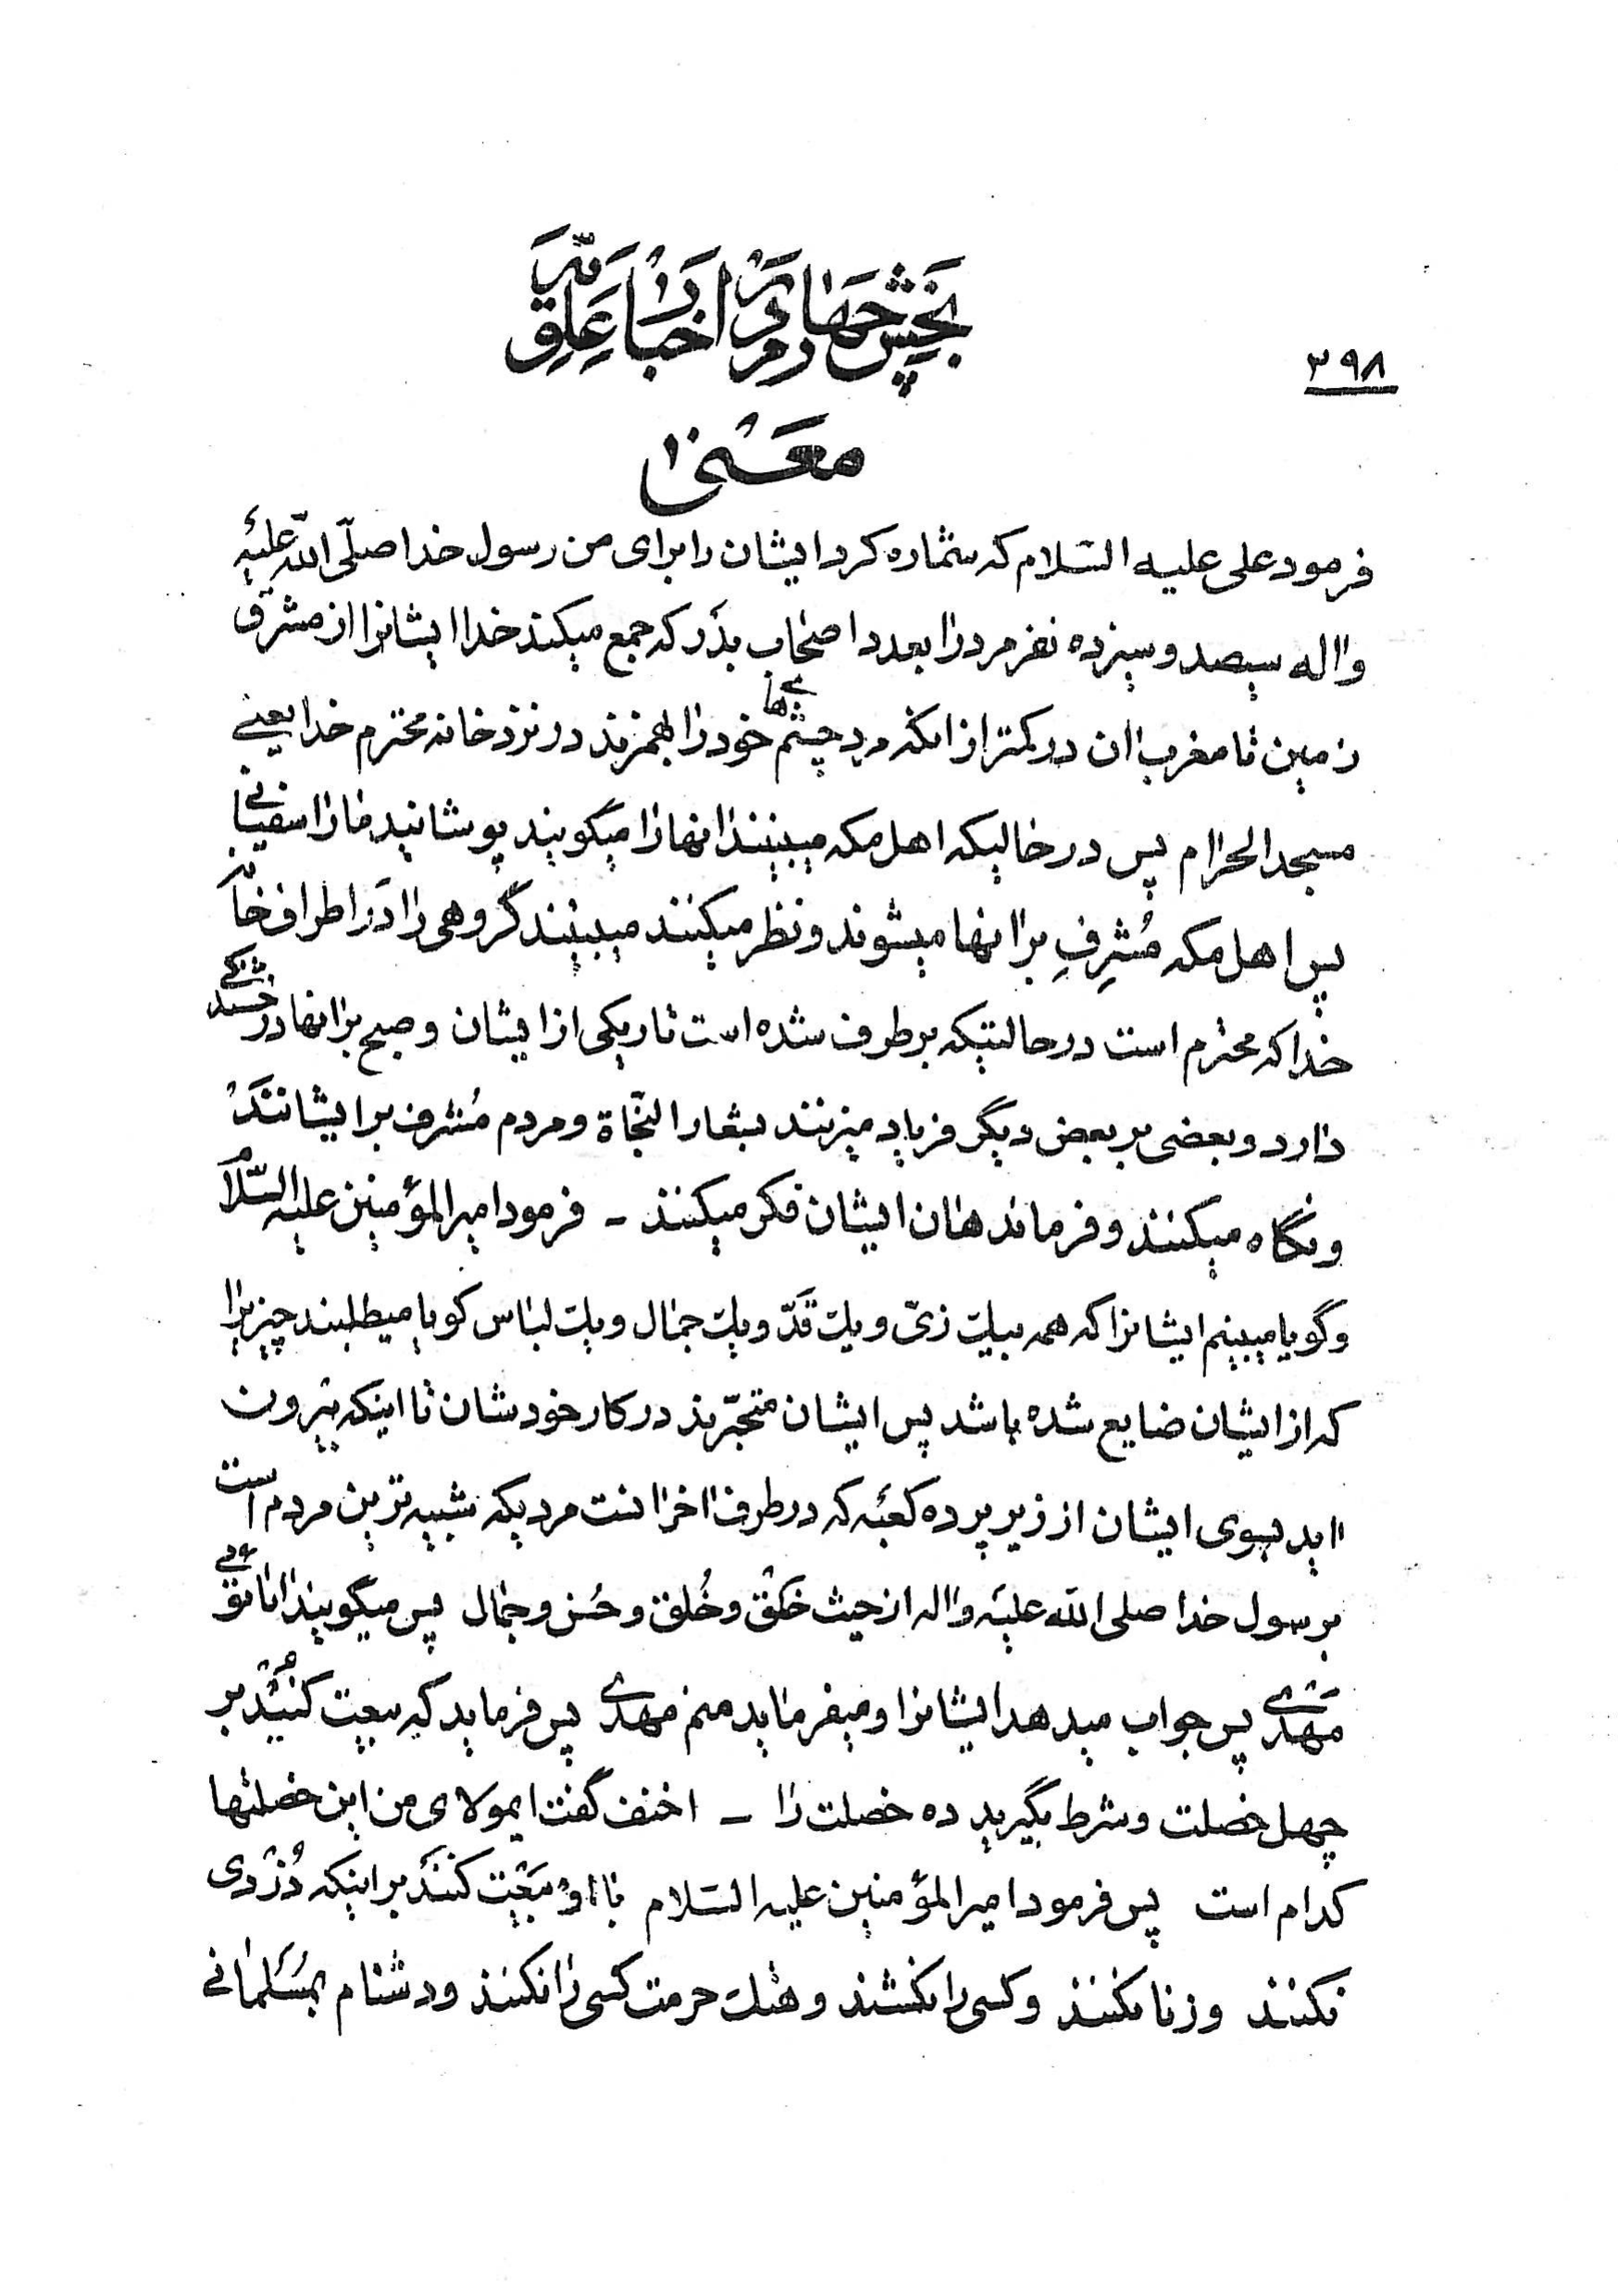 بخش چهارم در اخبار علویّه
۳۹۸
معنی
فرمود علی علیه السّلام که شماره کرد ایشان را برای من رسول خدا صلّی الله علیه
و اله سیصد و سیزده نفر مرد را بعدد اصحاب بدر که جمع میکند خدا ایشانرا از مشرق
زمین تا مغرب ان در کمتر از انکه مردی چشم‌های خود را بهمزند در نزد خانه محترم خدا یعنی
مسجد الحرام پس در حالیکه اهل مکه میبینند انها را میگویند پوشانید ما را سفیانی
پس اهل مکه مُشرِفِ بر انها میشوند و نظر میکنند میبینند گروهی را دَر اطراف خانه
خدا که محترم است در حالتیکه بر طرف شده است تاریکی از ایشان و صبح بر انها درخشندگی
دارد و بعضی بر بعض دیگر فریاد میزنند بشعار النّجاة و مردم مُشرف بر ایشانند
و نگاه میکنند و فرماندهان ایشان فکر میکنند ــ فرمود امیر المؤمنین علیه السّلام
و گویا میبینم ایشانرا که همه بیک زیّ و یک قَدّ و یک جمال و یک لباس گویا میطلبند چیزیرا
که از ایشان ضایع شده باشد پس ایشان متحیّرند در کار خودشان تا اینکه بیرون
اید بسوی ایشان از زیر پرده کعبه که در طرف اخر است مردیکه شبیه ترین مردم است
برسول خدا صلی الله علیه و اله از حیث خَلق و خُلق و حُسن و جمال پس میگویند ایا توئی
مَهدی پس جواب میدهد ایشانرا و میفرماید منم مهدی پس فرماید که بیعت کنید بر
چهل خصلت و شرط بگیرید ده خصلت را ــ احنف گفت ایمولای من این خصلتها
کدام است پس فرمود امیر المؤمنین علیه السّلام با او بَیعت کنند بر اینکه دُزدی
نکنند و زنا نکنند و کسی را نکشند و هتک حرمت کسی را نکنند و دشنام بمسلمانی